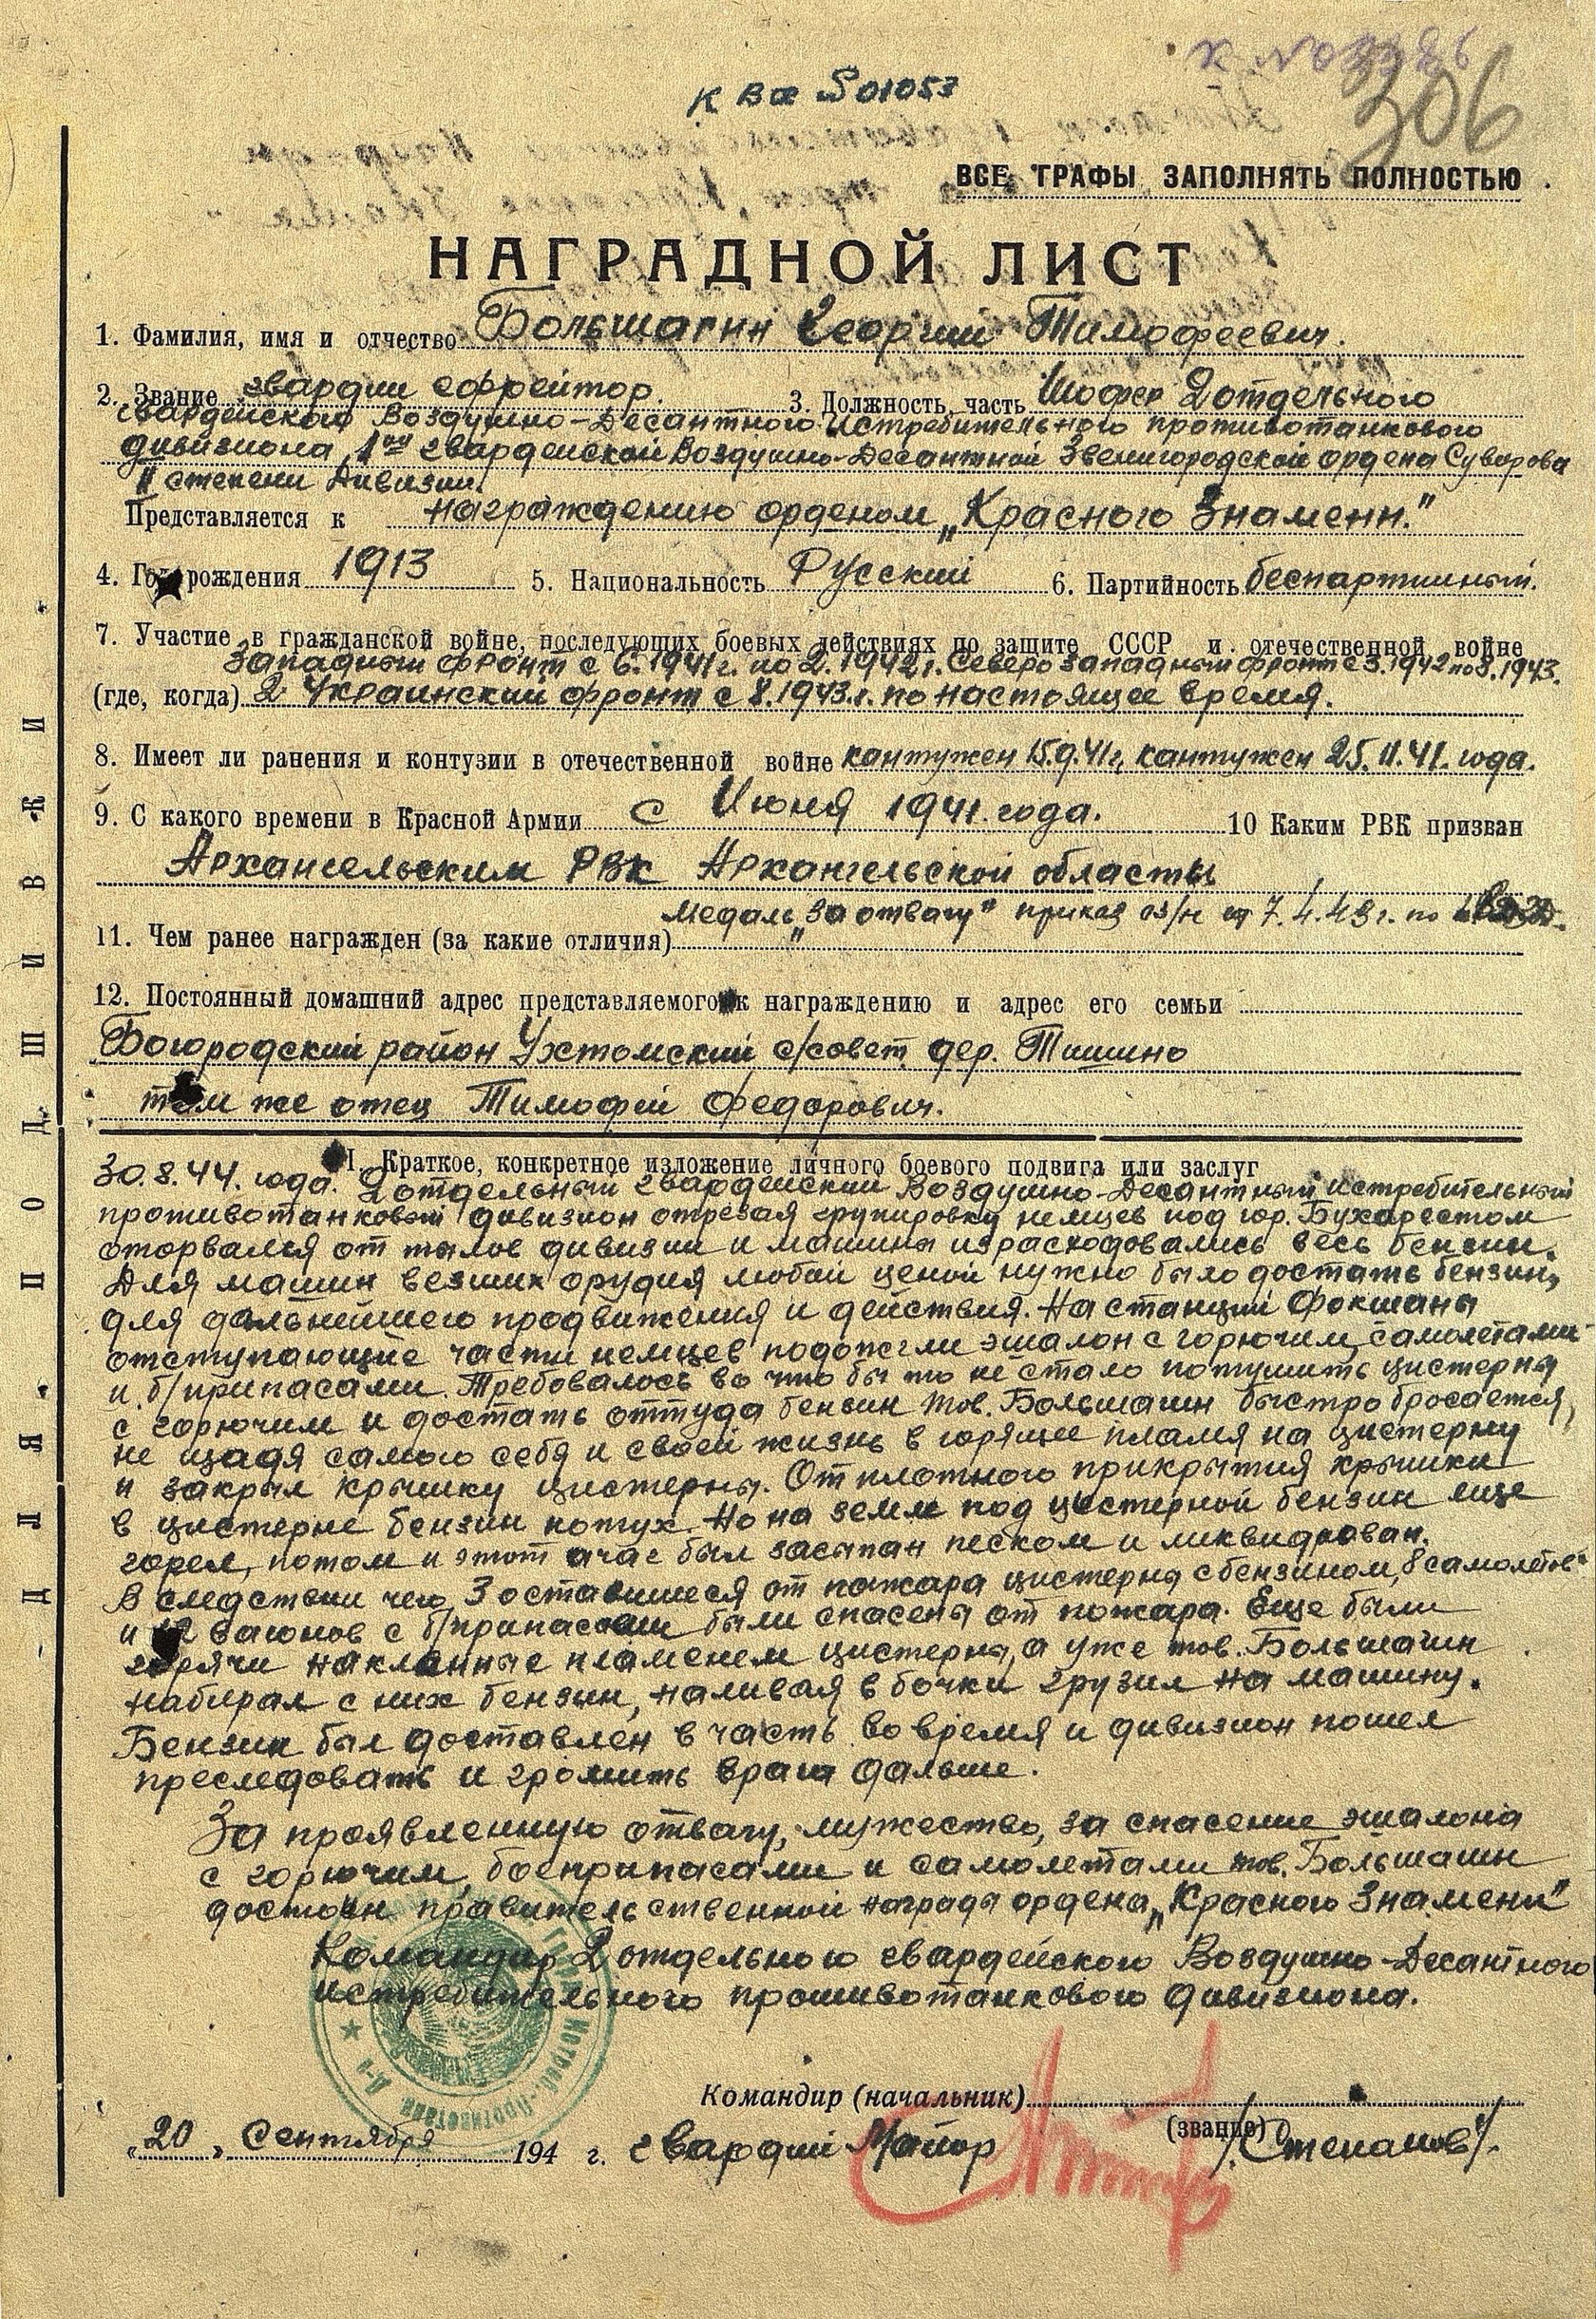 К вх S01053
306
ВСЕ ГРАФЫ ЗАПОЛНЯТЬ ПОЛНОСТЬЮ
НАГРАДНОЙ ЛИСТ
1. Фамилия, имя и отчество Большагин Георгий Тимофеевич.
2. Звание гвардии ефрейтор. 3. Должность, часть Шофер 2 отдельного
гвардейского Воздушно-Десантного Истребительного противотанкового
дивизиона, 1ой гвардейской Воздушно-Десантной Звенигородской ордена Суворова
II степени Дивизии.
Представляется к награждению орденом „Красного Знамени."
4. Год рождения 1913 5. Национальность Русский 6. Партийность беспартийный.
7. Участие в гражданской войне, последующих боевых действиях по защите СССР и отечественной войне
Западный фронт с 6.1941г. по 2.1942г. Северо западный фронт с 3.1942 по 8.1943.
(где, когда) 2 Украинский фронт с 8.1943.г. по настоящее время.
8. Имеет ли ранения и контузии в отечественной войне кантужен 15.9.41г, кантужен 25.11.41. года.
9. С какого времени в Красной Армии с Июня 1941. года. 10 Каким РВК призван
Архангельским РВК Архангельской области
Медаль „За отвагу" приказ 03/н от 7.4.43 г. по
11. Чем ранее награжден (за какие отличия)
12. Постоянный домашний адрес представляемого к награждению и адрес его семьи
Богородский район Ухтомский с/совет, дер. Тишино
там же отец Тимофей Федорович.
I. Краткое, конкретное изложение личного боевого подвига или заслуг
30.8.44. года. 2 отдельный гвардейский Воздушно-Десантный истребительный
противотанковый дивизион отрезая групировку немцев под гор. Бухарестом
оторвался от тылов дивизии и машины израсходовались весь бензин.
Для машин везших орудия любой ценой нужно было достать бензин,
для дальнейшего продвижения и действия. На станции Фокшаны
отступающие части немцев подожгли эшалон с горючим, самолетами
и б/припасами. Требовалось во что бы то не стало потушить цистерны
с горючим и достать оттуда бензин тов. Большагин быстро бросается,
не щадя самого себя и своей жизнь в горящее пламя на цистерну
и закрыл крышку цистерны. От плотного прикрытия крышки
в цистерне бензин потух. Но на земле под цистерной бензин еще
горел, потом и этот ачаг был засыпан песком и ликвидрован.
В следствии чего 3 оставшиеся от пожара цистерны с бензином, 8 самолетов
и 12 вагонов с б/припасами были спасены от пожара. Еще были
горячи накланные пламенем цистерны, а уже тов. Большагин
набирал с них бензин, наливая в бочки грузил на машину.
Бензин был доставлен в часть во время и дивизион пошел
преследовать и громить врага дальше.
За проявленную отвагу, мужество, за спасение эшалона
с горючим, боеприпасами и самолетами тов. Большагин
достоин правительственной награды ордена „Красного Знамени"
Командир 2 отдельного гвардейского Воздушно-Десантного
истребительного противотанкового дивизиона.
Командир (начальник)
(звание)
„20" Сентября 194 г. гвардии Майор /Степанов/.
ДЛЯ ПОДШИВКИ